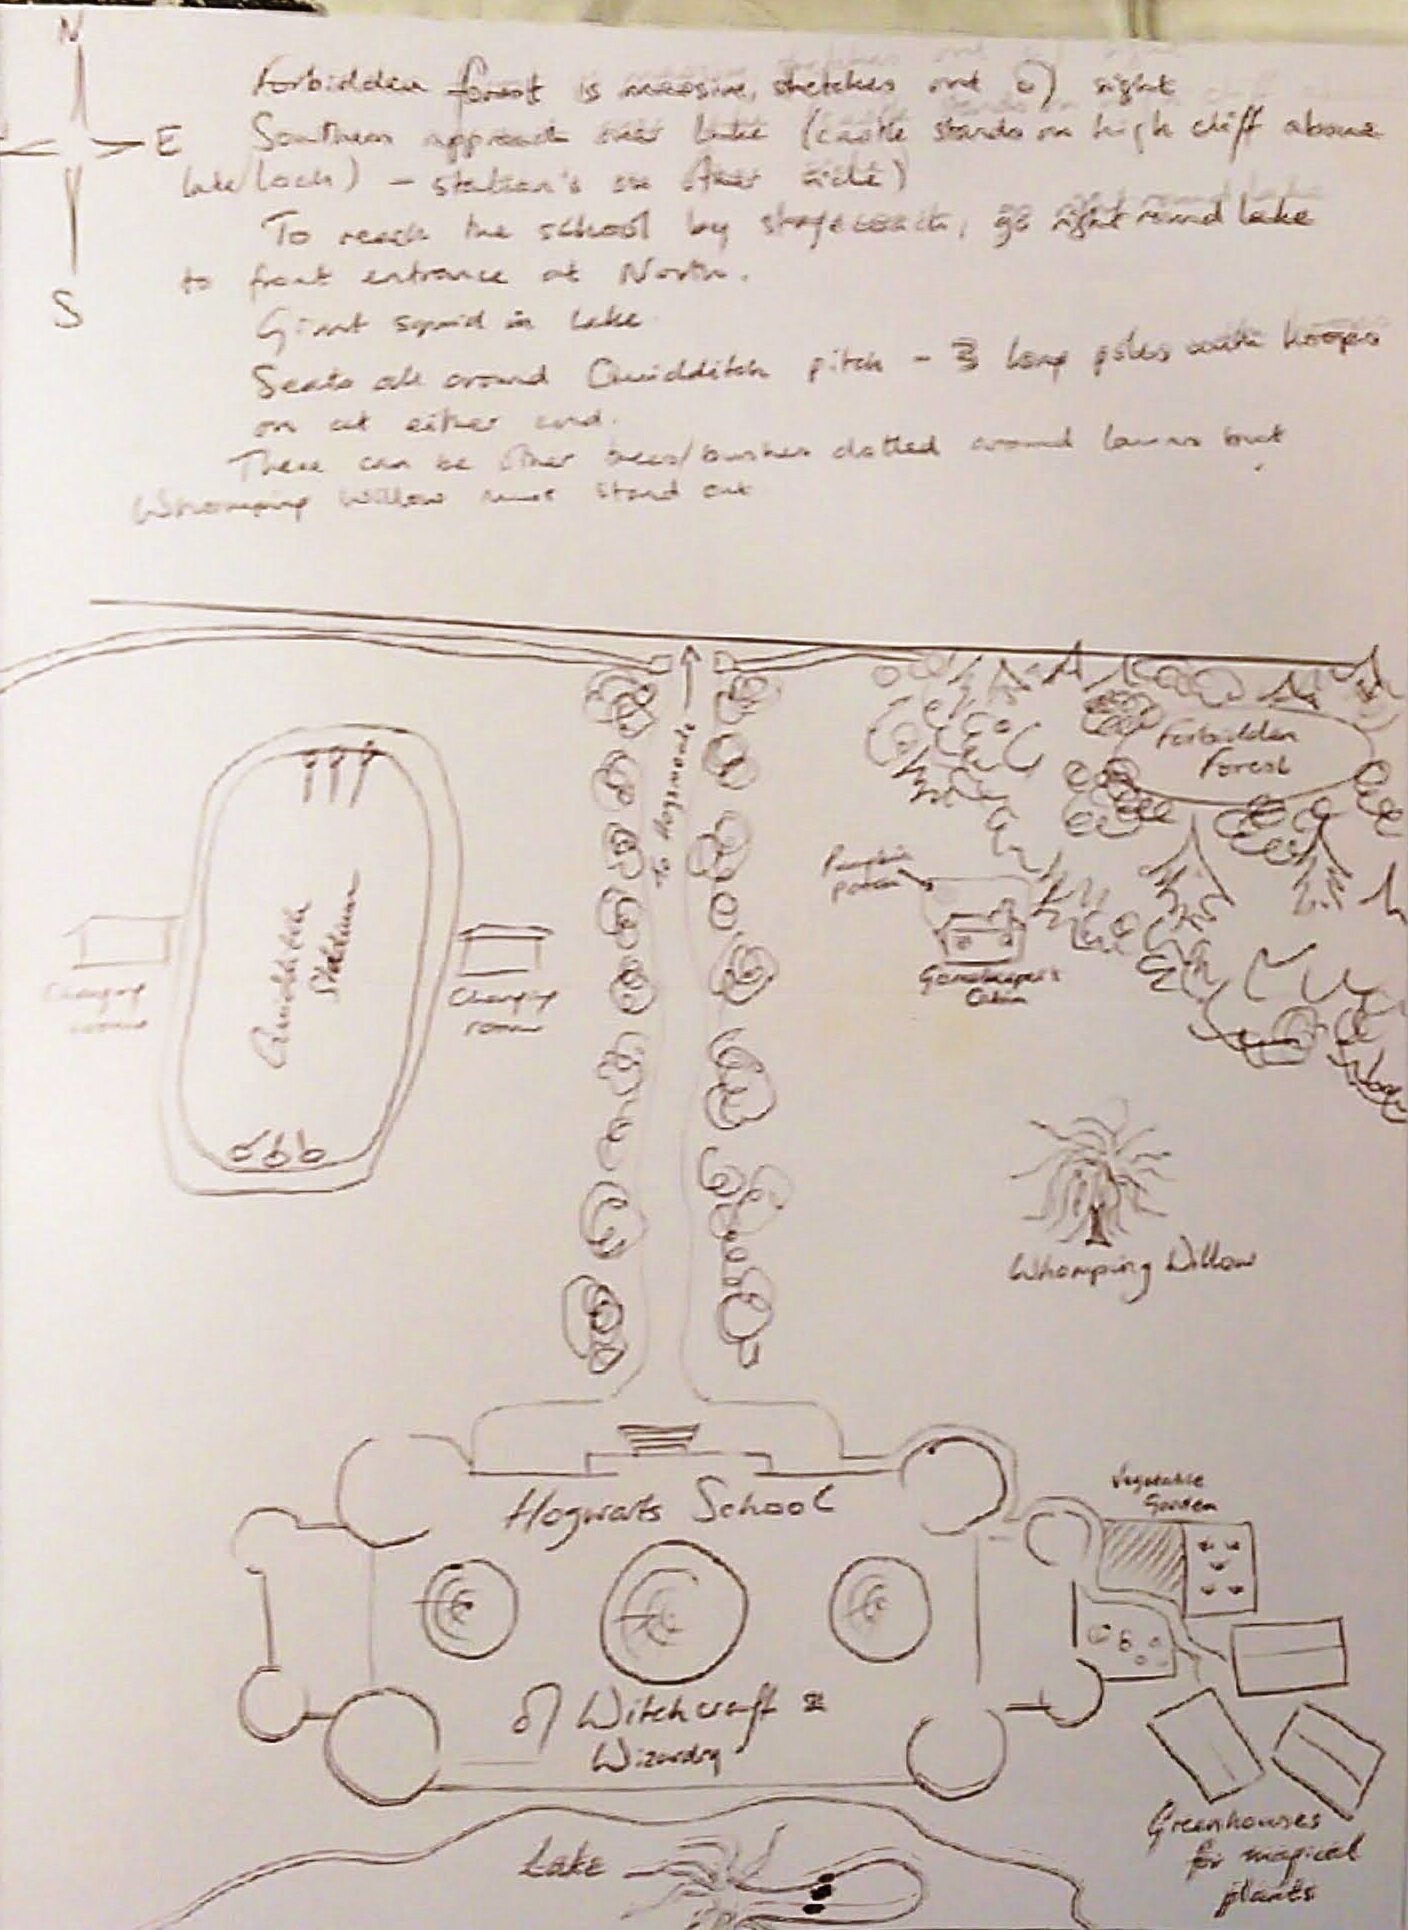 N
E
S
Forbidden forest is massive, stretches out of sight
Southern approach over lake (castle stands on high cliff above
lake/loch) – station's on other side)
To reach the school by stagecoach, go right round lake
to front entrance at North.
Giant squid in lake
Seats all around Quidditch pitch – 3 long poles with hoops
on at either end.
There can be other trees/bushes dotted around lawns but
Whomping Willow must stand out
To Hogsmeade
Forbidden
Forest
Pumpkin
patch
Gamekeeper's
Cabin
Quidditch
Stadium
Changing
rooms
Changing
rooms
Whomping Willow
Hogwarts School
of Witchcraft &
Wizardry
Vegetable
Garden
Greenhouses
for magical
plants
Lake